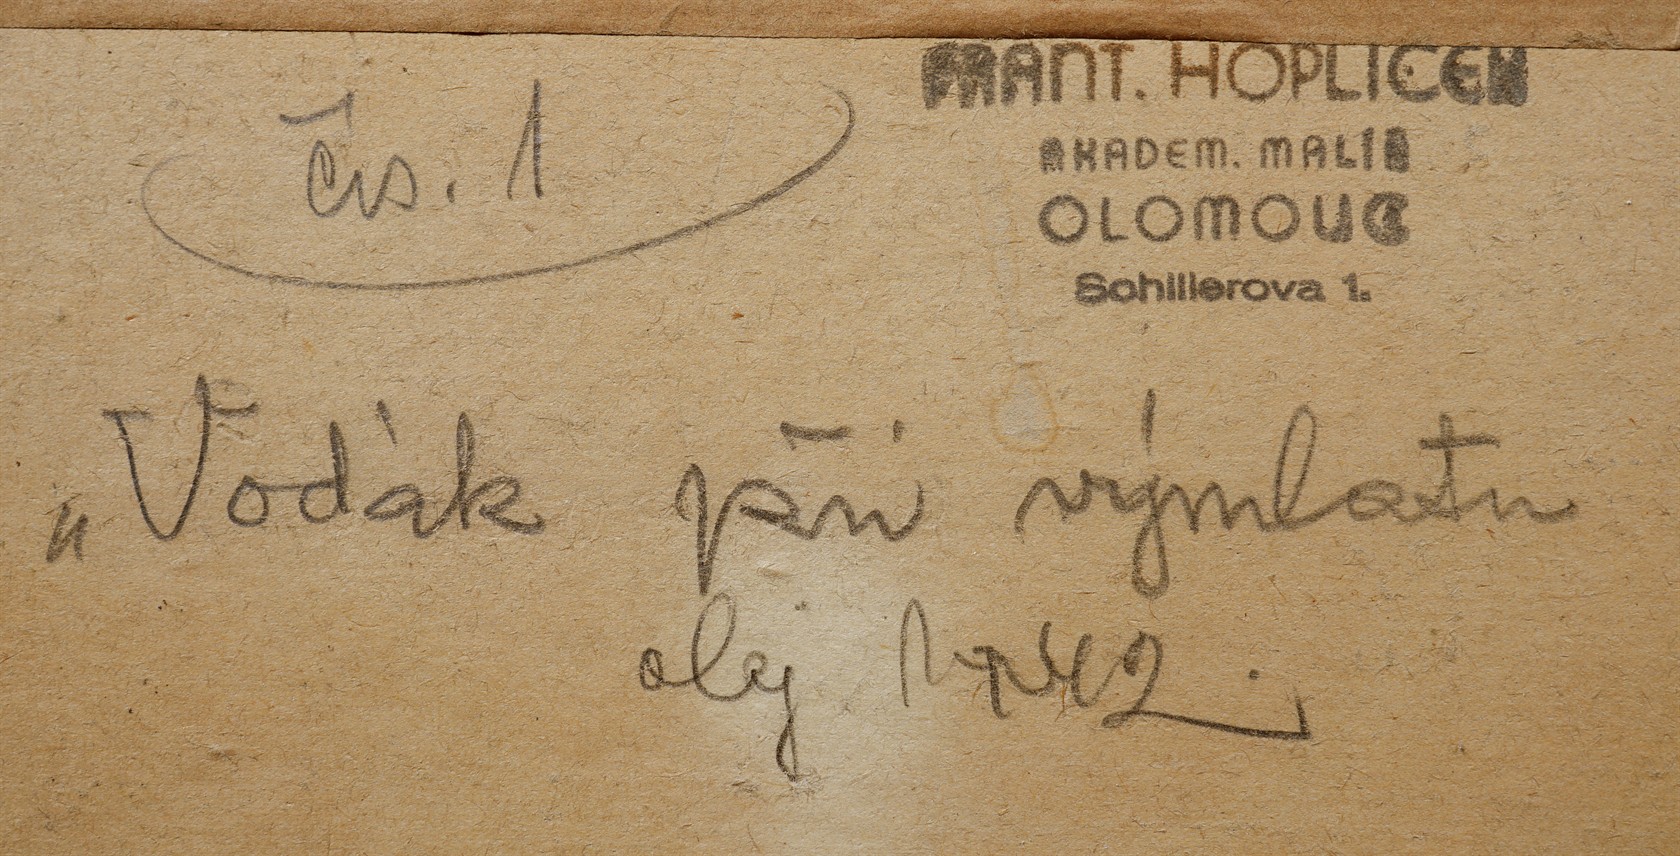 čís. 1
FRANT. HOPLÍČEK
AKADEM. MALÍŘ
OLOMOUC
Schillerova 1.
„Vodák při výmlatu
olej